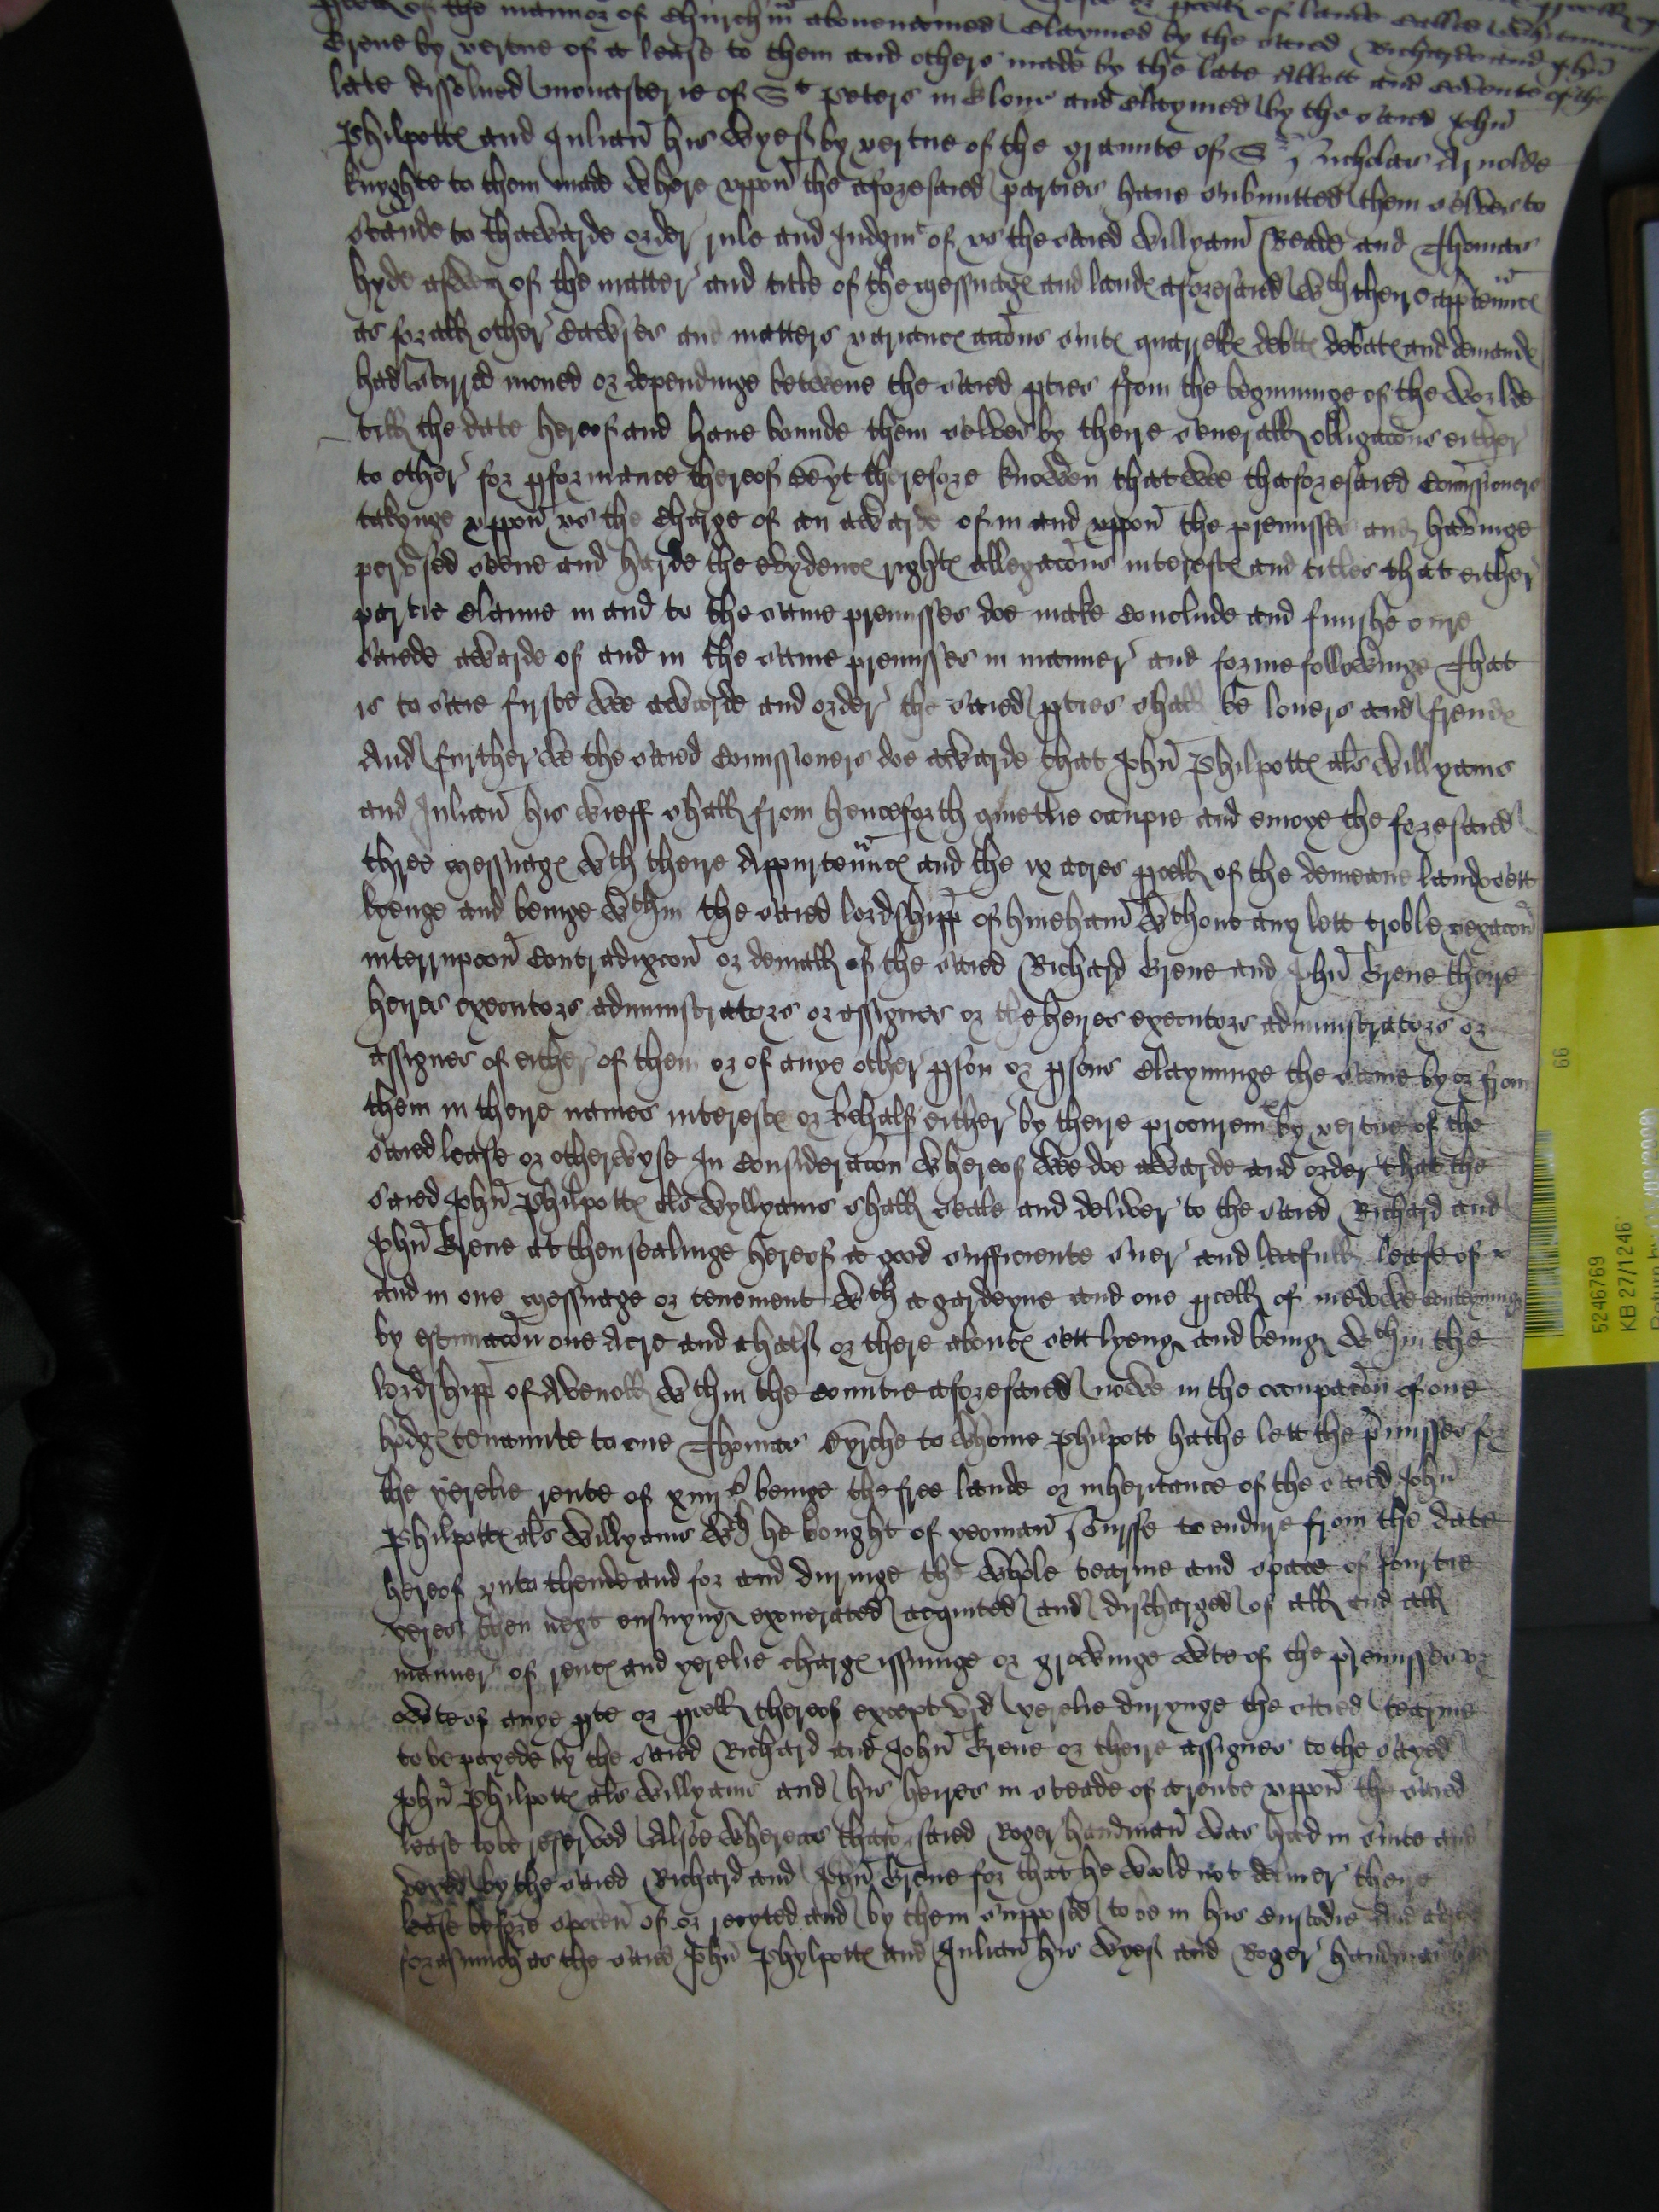 pcell of the mannor of Churchm abovenamed Claymed by the saied Richarde and John
Grene by vertue of a lease to them and others made by the late Abbott and Covente of the
late dissolued monasterie of St Peters in Glouc and Claymed by the saied John
Philpotte and Julian his Wyef by vertue of the graunte of Sr Nicholas Arnolde
knyghte to them made where vppon the aforesaied parties haue submitted them selves to
stande to thawarde order rule and Judgmt of vs the saied Willyam Reade and Thomas
hyde aswell of the matter and title of the messuage and lande aforesaied wth theire apptennce
as for all other Cawses and matters variance accons suite quarelle dette debate and demande
had styrred moued or dependinge betwene the saied pties from the begynninge of the worlde
till the date hereof and haue bounde them selves by theire severall obligacons either
to other for pformance thereof Be yt therefore knowen that wee thaforesaied Comissioners
takynge vppon vs the Charge of an awarde of in and vppon the premisses and havinge
pervsed seene and harde the evydence righte allegacons intereste and titles that either
partie clayme in and to the same premisses doe make Conclude and finishe oure
saiede awarde of and in the same premisses in manner and forme followinge That
is to saie fyrste we awarde and order the saied pties shall be lovers and frende
And further we the saied Comissioners doe awarde that John Philpotte als Willyams
and Julian his wieff shall from henceforth quietlie occupie and enioye the foresaied
three messuage wth theire Appurtennce and the ix acres pcell of the demeane land sett
lyenge and beinge wthin the saied lordshipp of hineham wthout any lett troble vexacon
interrupcon Contradixcon or deniall of the saied Richard Grene and John Grene theire
heires executors administrators or assignes or the heires executors administrators or
assignes of either of them or of anye other pson or psons claymynge the same by or from
them in theire names intereste or behalf either by theire procuremt by vertue of the
saied lease or otherwyse In Consideracon whereof we doe awarde and order that the
saied John Philpotte als Wyllyams shall seale and deliver to the saied Richard and
John Grene at thensealinge hereof a good sufficiente suer and leafull lease of
and in one messuage or tenement wth a gardeyne and one pcell of medowe conteyning
by estimacon one Acre and a half or there aboute sett lyeng and being wthin the
lordshipp of Awenoll wthin the countie aforesaied nowe in the occupacon of one
hodge tenaunte to one Thomas Byrche to whome Philpott hathe lett the pmisses for
the yerelie rente of xiiij s beinge the free lande or inheritance of the saied John
Philpotte als Willyams wch he bought of yeoman to endure from the date
hereof vnto thende and for and duringe the whole tearme and space of fourtie
yeres then next ensuyng exonerated acquited and discharged of all and all
manner of rente and yerelie charge issuinge or growinge owte of the premisses or
owte of anye pte or pcell thereof except vj d yerelie durynge the saied tearme
to be payede by the saied Richard and John Grene or theire assignes to the sayed
John Philpotte als Willyams and his heires in steade of a rente vppon the saied
lease to be reserved Alsoe whereas thaforsaied Roger handman was had in suite and
vexed by the saied Richard and John Grene for that he wold not deliuer theire
lease before spoken of or recyted and by them supposed to be in his custodie And
forasmuch as the saied John Phylpotte and Julian his wyef and Roger handman
99
5246769
KB 27/1246